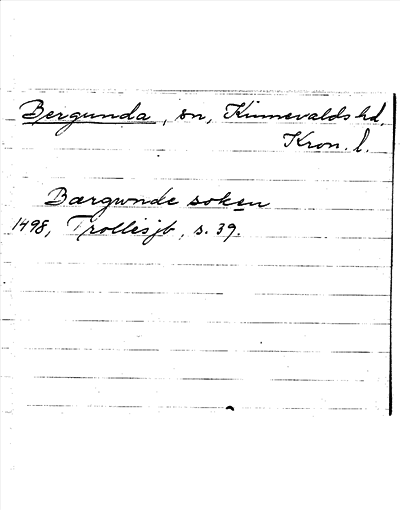 Bergunda, sn, Kinnevalds hd,
Kron. l.
Bærgwnde soken
1498, Trolles jb, s. 39.